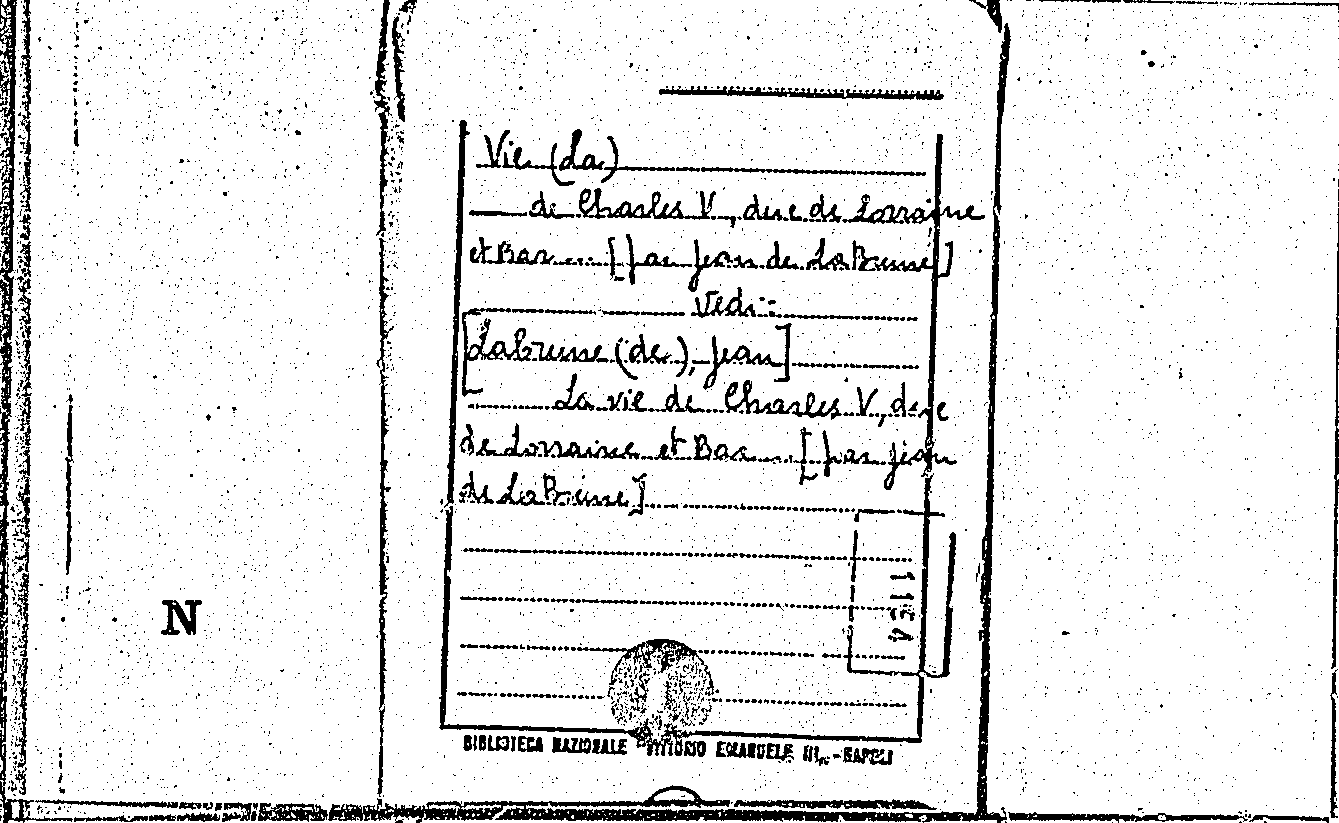 Vie (La)
de Charles V, duc de Lorraine
et Bar.... [par Jean de La Brune]
Vedi:
[Labrune (de), Jean]
La vie de Charles V, duc
de Lorraine et Bar.... [par Jean
de La Brune]
N
BIBLIOTECA NAZIONALE "VITTORIO EMANUELE III" - NAPOLI